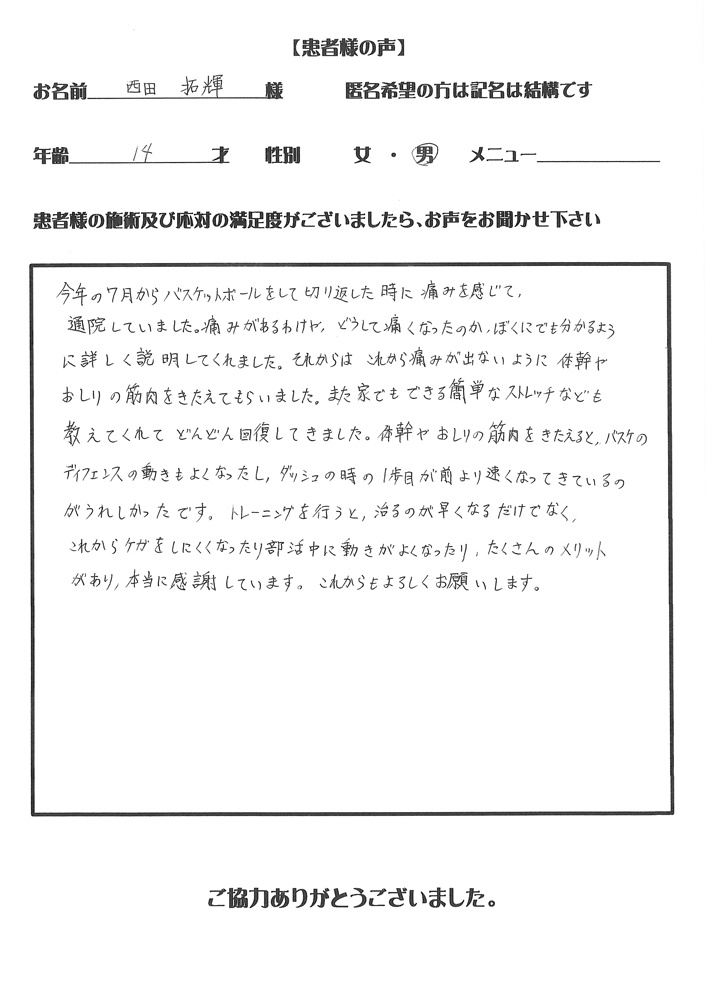 【患者様の声】
お名前 西田 拓輝 様 匿名希望の方は記名は結構です
年齢 14 才 性別 女・男 メニュー
患者様の施術及び応対の満足度がございましたら、お声をお聞かせ下さい
今年の7月からバスケットボールをして切り返した時に痛みを感じて、
通院していました。痛みがあるわけや、どうして痛くなったのか、ぼくにでも分かるよう
に詳しく説明してくれました。それからは これから痛みが出ないように 体幹や
おしりの筋肉をきたえてもらいました。また家でもできる簡単なストレッチなども
教えてくれて どんどん回復してきました。体幹や おしりの筋肉をきたえると、バスケの
ディフェンスの動きもよくなったし、ダッシュの時の1歩目が前より速くなってきているの
がうれしかったです。トレーニングを行うと、治るのが早くなるだけでなく、
これからケガをしにくくなったり部活中に動きがよくなったり、たくさんのメリット
があり、本当に感謝しています。これからもよろしくお願いします。
ご協力ありがとうございました。